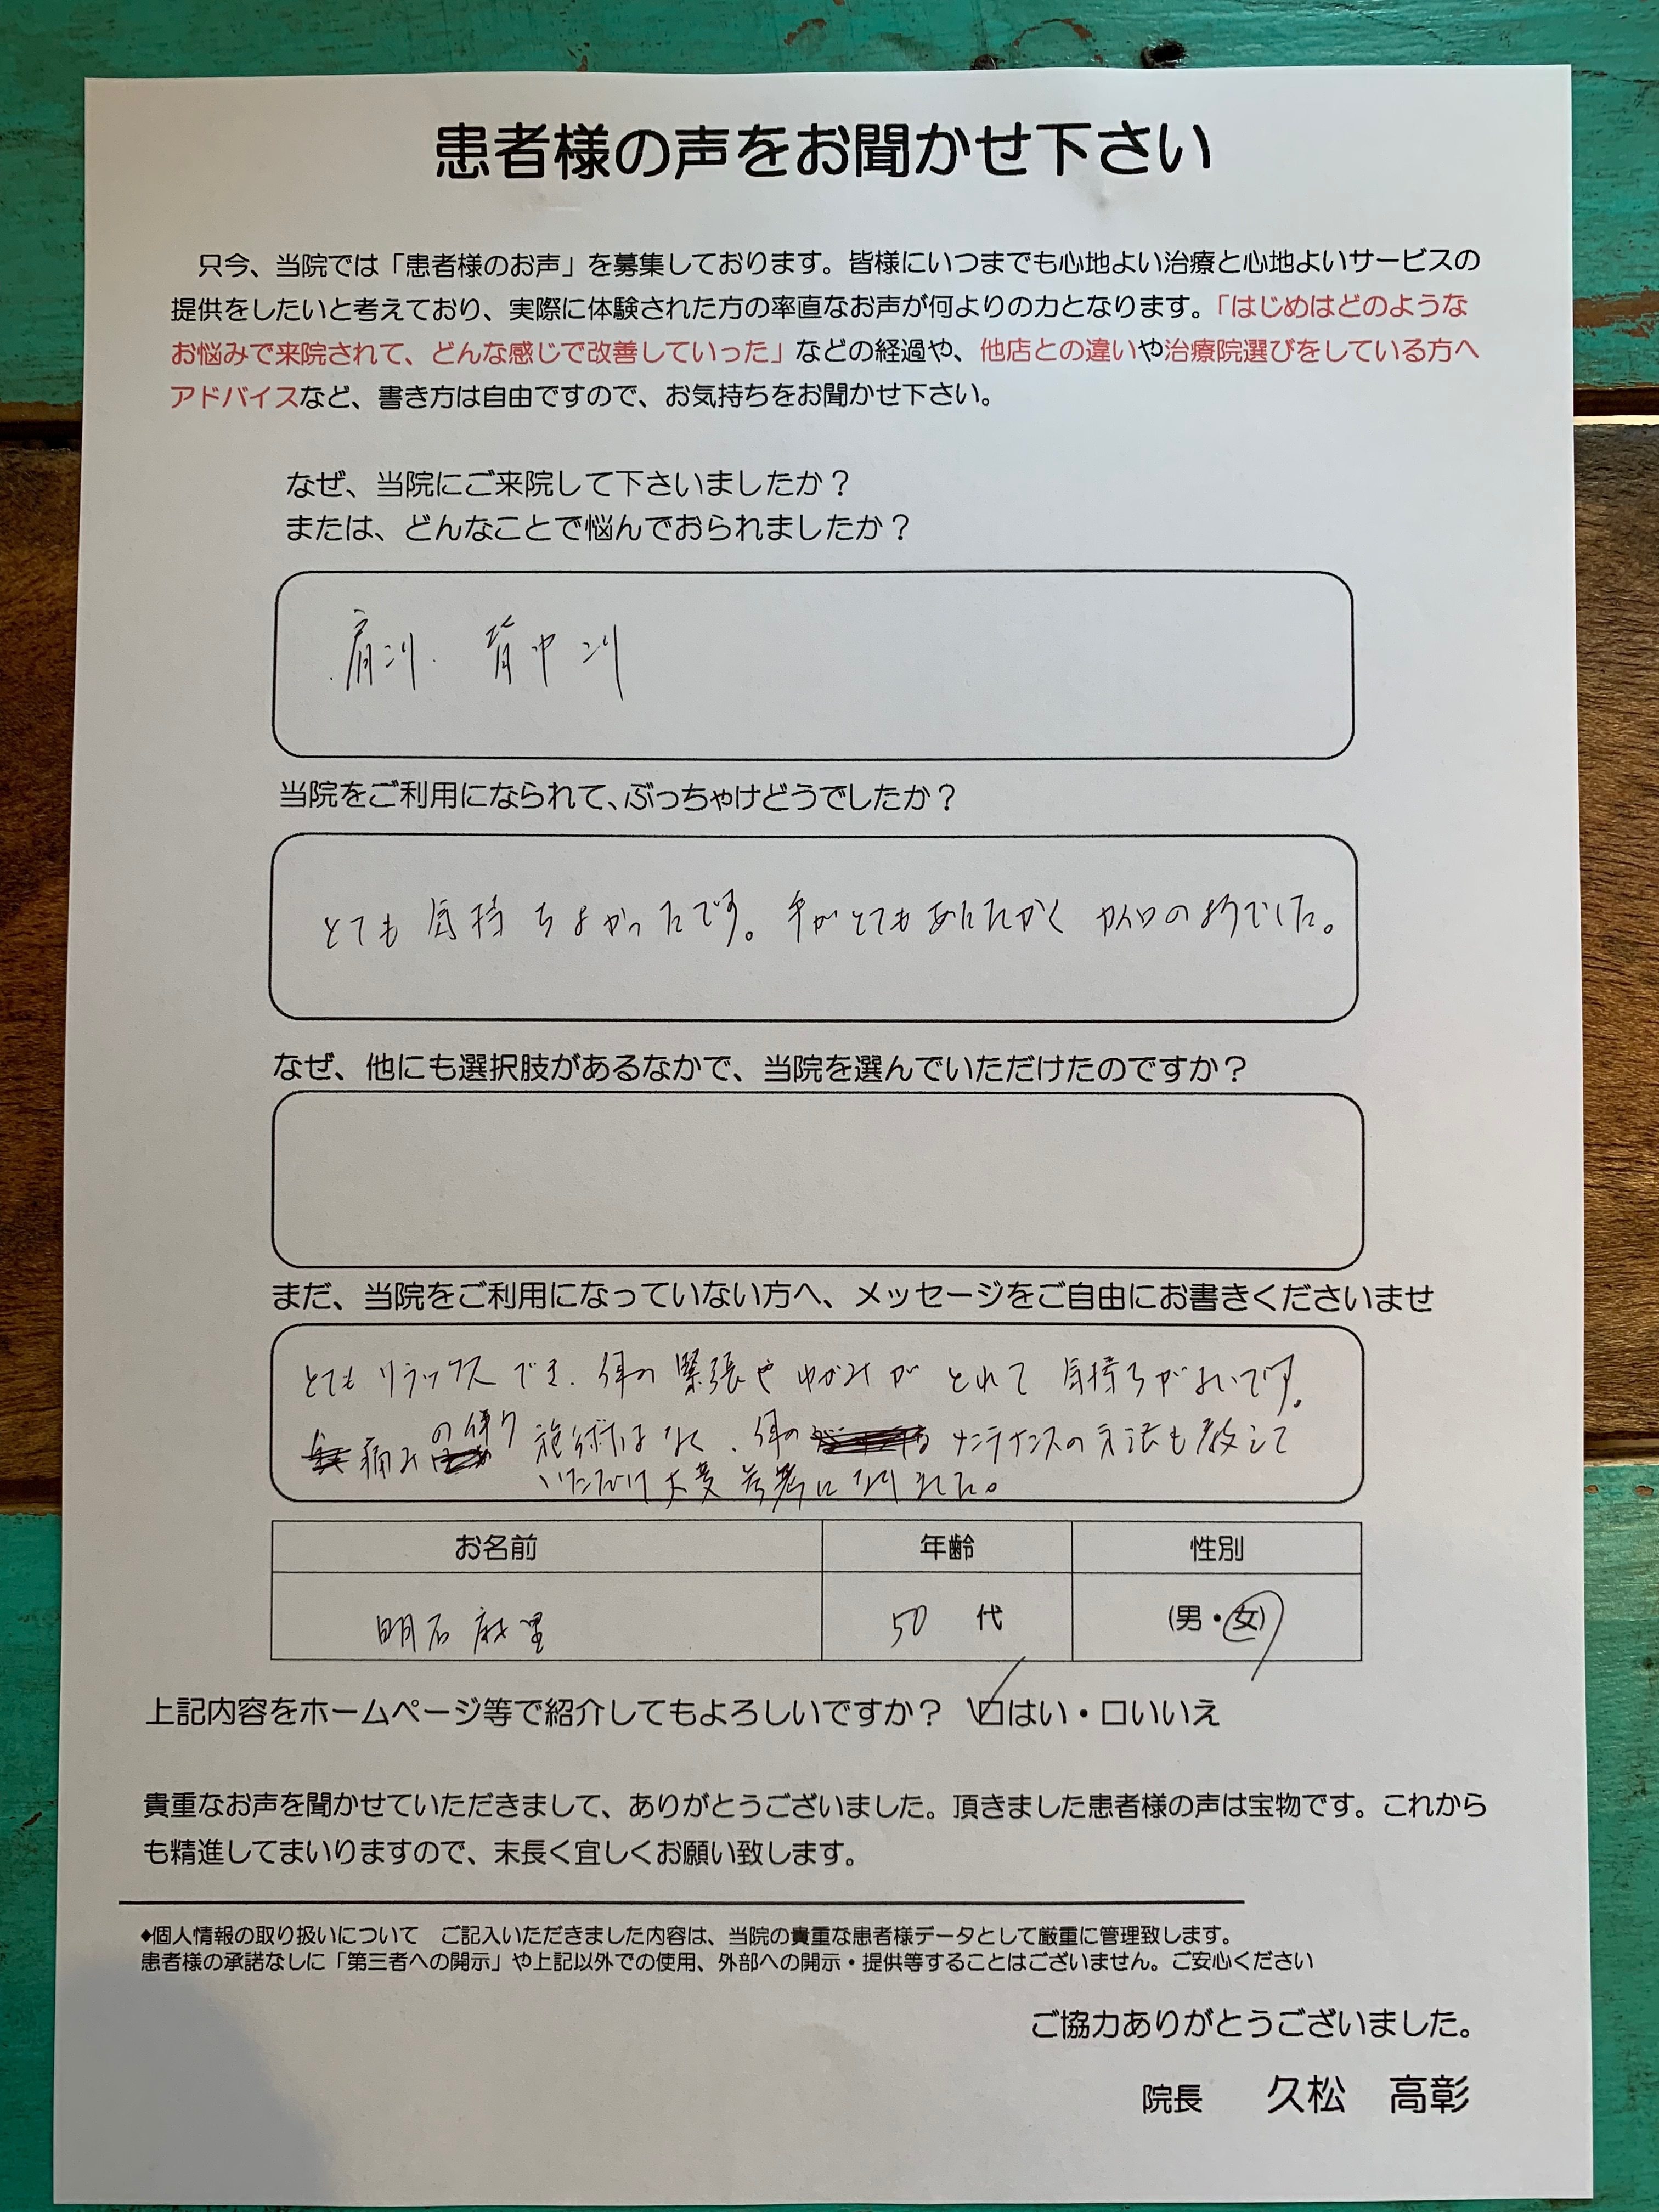 患者様の声をお聞かせ下さい
只今、当院では「患者様のお声」を募集しております。皆様にいつまでも心地よい治療と心地よいサービスの
提供をしたいと考えており、実際に体験された方の率直なお声が何よりの力となります。「はじめはどのような
お悩みで来院されて、どんな感じで改善していった」などの経過や、他店との違いや治療院選びをしている方へ
アドバイスなど、書き方は自由ですので、お気持ちをお聞かせ下さい。
なぜ、当院にご来院して下さいましたか？
または、どんなことで悩んでおられましたか？
肩コリ. 背中コリ
当院をご利用になられて、ぶっちゃけどうでしたか？
とても気持ちよかったです。手がとてもあたたかくカイロの様でした。
なぜ、他にも選択肢があるなかで、当院を選んでいただけたのですか？
まだ、当院をご利用になっていない方へ、メッセージをご自由にお書きくださいませ
とてもリラックスでき、体の緊張やゆがみがとれて気持ちがよいです。
痛みの伴う施術はなく、体のメンテナンスの方法も教えて
いただけ大変参考になりました。
お名前 年齢 性別
明石麻里 50 代 (男・女)
上記内容をホームページ等で紹介してもよろしいですか？ ☑はい・□いいえ
貴重なお声を聞かせていただきまして、ありがとうございました。頂きました患者様の声は宝物です。これから
も精進してまいりますので、末長く宜しくお願い致します。
◆個人情報の取り扱いについて ご記入いただきました内容は、当院の貴重な患者様データとして厳重に管理致します。
患者様の承諾なしに「第三者への開示」や上記以外での使用、外部への開示・提供等することはございません。ご安心ください
ご協力ありがとうございました。
院長 久松 高彰